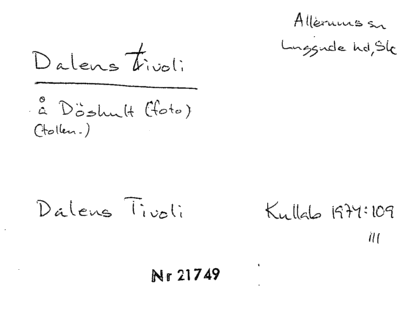 Allerums sn
Luggude hd, Sk
Dalens Tivoli
å Döshult (foto)
(tollen.)
Dalens Tivoli
Kullab 1974:109
ill
Nr 21749